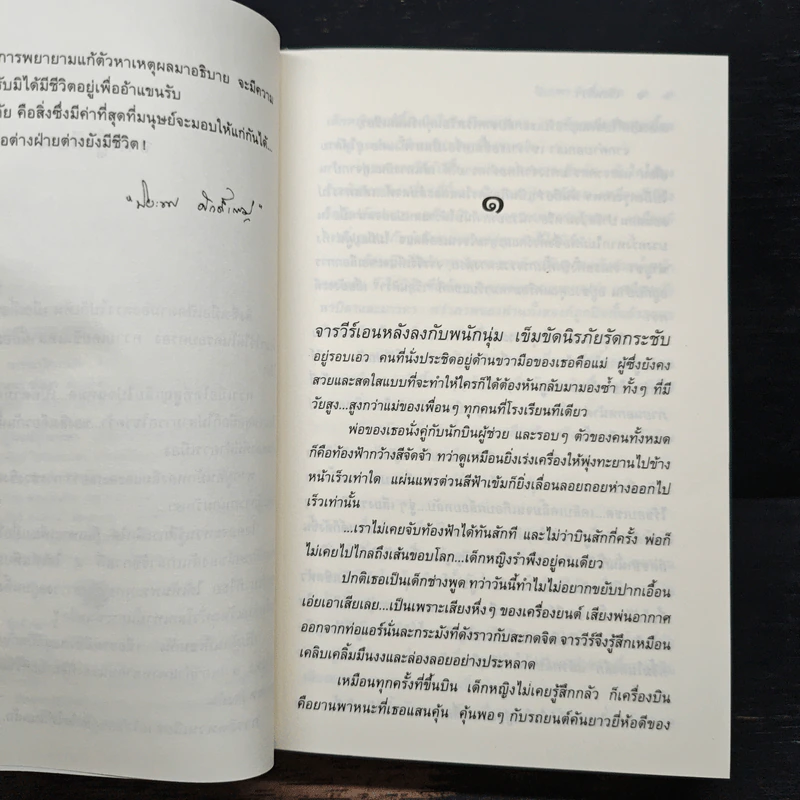 การพยายามแก้ตัวหาเหตุผลมาอธิบาย จะมีความ
รับมิได้มีชีวิตอยู่เพื่ออ้าแขนรับ
ัย คือสิ่งซึ่งมีค่าที่สุดที่มนุษย์จะมอบให้แก่กันได้...
อต่างฝ่ายต่างยังมีชีวิต!
๑
จารวีร์เอนหลังลงกับพนักนุ่ม เข็มขัดนิรภัยรัดกระชับ
อยู่รอบเอว คนที่นั่งประชิดอยู่ด้านขวามือของเธอคือแม่ ผู้ซึ่งยังคง
สวยและสดใสแบบที่จะทำให้ใครก็ได้ต้องหันกลับมามองซ้ำ ทั้งๆ ที่มี
วัยสูง...สูงกว่าแม่ของเพื่อนๆ ทุกคนที่โรงเรียนทีเดียว
พ่อของเธอนั่งคู่กับนักบินผู้ช่วย และรอบๆ ตัวของคนทั้งหมด
ก็คือท้องฟ้ากว้างสีจัดจ้า ทว่าดูเหมือนยิ่งเร่งเครื่องให้พุ่งทะยานไปข้าง
หน้าเร็วเท่าใด แผ่นแพรต่วนสีฟ้าเข้มก็ยิ่งเลื่อนลอยถอยห่างออกไป
เร็วเท่านั้น
...เราไม่เคยจับท้องฟ้าได้ทันสักที และไม่ว่าบินสักกี่ครั้ง พ่อก็
ไม่เคยไปไกลถึงเส้นขอบโลก...เด็กหญิงรำพึงอยู่คนเดียว
ปกติเธอเป็นเด็กช่างพูด ทว่าวันนี้ทำไมไม่อยากขยับปากเอื้อน
เอ่ยเอาเสียเลย...เป็นเพราะเสียงหึ่งๆ ของเครื่องยนต์ เสียงพ่นอากาศ
ออกจากท่อแอร์นั่นละกระมังที่ดังราวกับสะกดจิต จารวีร์จึงรู้สึกเหมือน
เคลิบเคลิ้มมึนงงและล่องลอยอย่างประหลาด
เหมือนทุกครั้งที่ขึ้นบิน เด็กหญิงไม่เคยรู้สึกกลัว ก็เครื่องบิน
คือยานพาหนะที่เธอแสนคุ้น คุ้นพอๆ กับรถยนต์คันยาวยี่ห้อดีของ